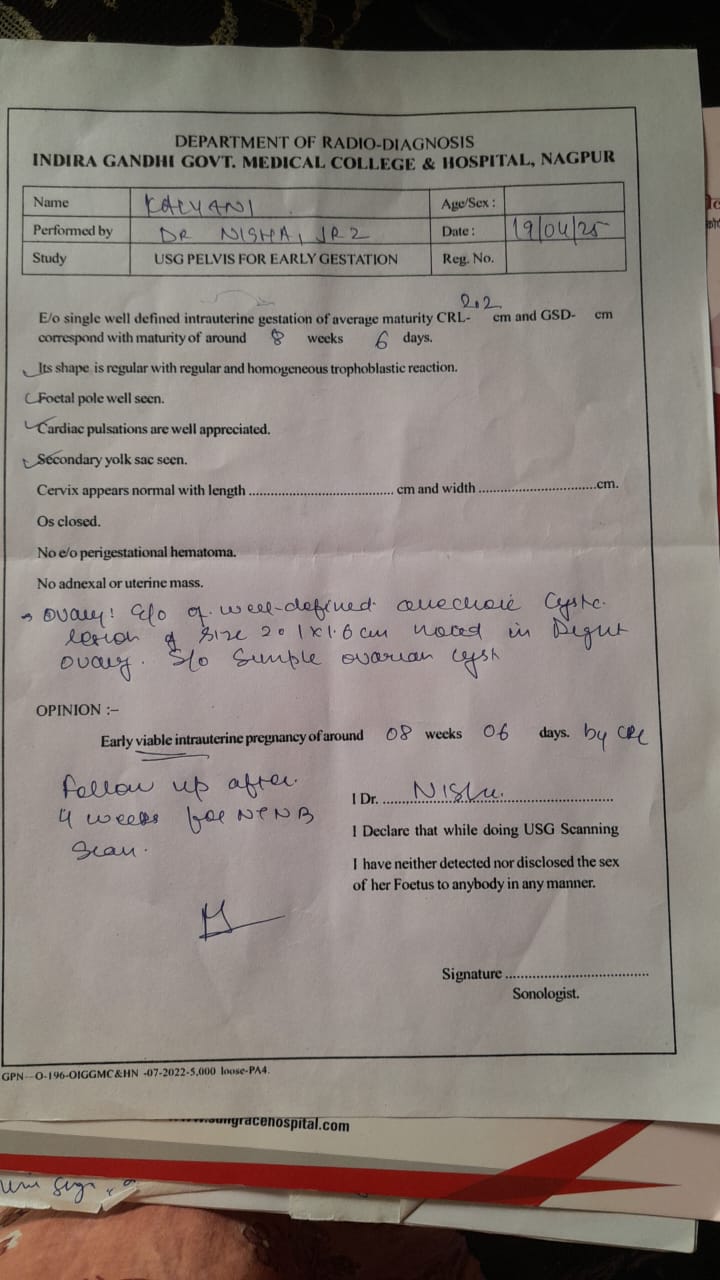 DEPARTMENT OF RADIO-DIAGNOSIS
INDIRA GANDHI GOVT. MEDICAL COLLEGE & HOSPITAL, NAGPUR
Name KALYANI Age/Sex :
Performed by DR NISHA, JR2 Date : 19/04/25
Study USG PELVIS FOR EARLY GESTATION Reg. No.
E/o single well defined intrauterine gestation of average maturity CRL- 2.2 cm and GSD- cm
correspond with maturity of around 8 weeks 6 days.
Its shape is regular with regular and homogeneous trophoblastic reaction.
Foetal pole well seen.
Cardiac pulsations are well appreciated.
Secondary yolk sac seen.
Cervix appears normal with length .................................... cm and width .............................cm.
Os closed.
No e/o perigestational hematoma.
No adnexal or uterine mass.
→ ovary: e/o of well-defined anechoic cystic
lesion of size 2.1x1.6 cm noted in Right
ovary. S/o simple ovarian cyst
OPINION :–
Early viable intrauterine pregnancy of around 08 weeks 06 days. by CRL
Follow up after
4 weeks for NTNB
scan.
I Dr. Nisha.
I Declare that while doing USG Scanning
I have neither detected nor disclosed the sex
of her Foetus to anybody in any manner.
Signature ....................................
Sonologist.
GPN—O-196-OIGGMC&HN -07-2022-5,000 loose-PA4.
gracehospital.com